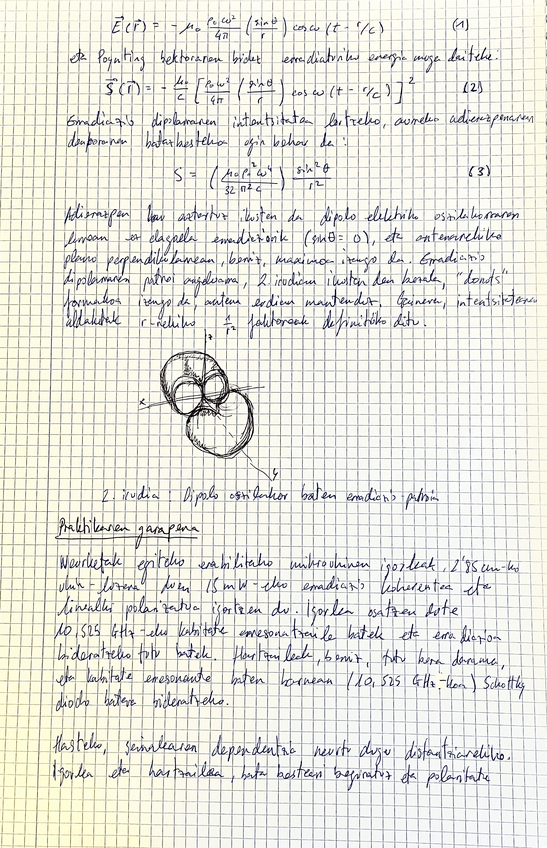 E⃗(r⃗) = - μ₀ p₀ω²/4π (sinθ/r) cos ω (t - r/c) (1)
eta Poynting bektorearen bidez erradiatutiko energia lor daiteke.
S⃗(r⃗) = - μ₀/c [p₀ω²/4π (sinθ/r) cos ω (t - r/c)]² (2)
Erradiazio dipolarraren intentsitatea lortzeko, aurreko adierazpenaren
denboraren batazbestekoa egin behar da :
S = (μ₀p₀²ω⁴/32π²c) sin²θ/r² (3)
Adierazpen hau aztertuz ikusten da dipolo elektriko oszilakorraren
lerroan ez dagoela erradiaziorik (sinθ = 0), eta antenarekiko
plano perpendikularrean, berriz, maximoa izango da. Erradiazio
dipolarraren patroi angeluarra, 2. irudian ikusten den bezala, "donuts"
formakoa izango da, antena erdian mantenduz. Gainera, intentsitatearen
aldaketak r-rekiko 1/r² faktoreak definituko ditu.
z
x
y
2. irudia : Dipolo oszilakor baten erradiazio-patroia
Praktikaren garapena
Neurketak egiteko erabilitako mikrouhinen igorleak, 2'85 cm-ko
uhin-luzera duen 15 mW-eko erradiazio koherentea eta
linealki polarizatua igortzen du. Igorlea osatzen dute
10,525 GHz-eko kabitate erresonatzaile batek eta erradiazioa
bideratzeko tutu batek. Hartzaileak, berriz, tutu bera darama,
eta kabitate erresonante baten barnean (10,525 GHz-koa) Schottky
diodo batera bideratzeko.
Hasteko, seinalearen dependentzia neurtu dugu distantziarekiko.
Igorlea eta hartzailea, bata besteari begiratuz eta polaritate